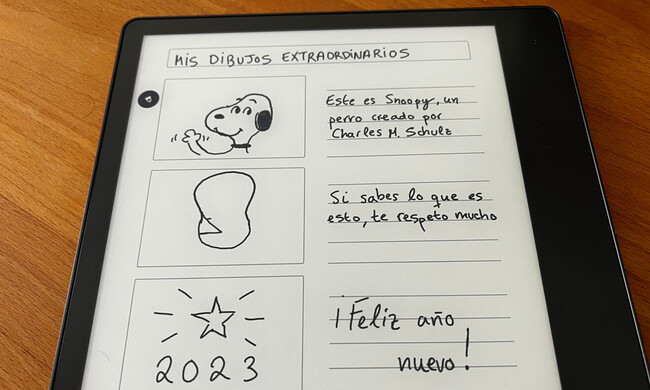 MIS DIBUJOS EXTRAORDINARIOS
Este es Snoopy, un
perro creado por
Charles M. Schulz
Si sabes lo que es
esto, te respeto mucho
2023
¡Feliz año
nuevo!